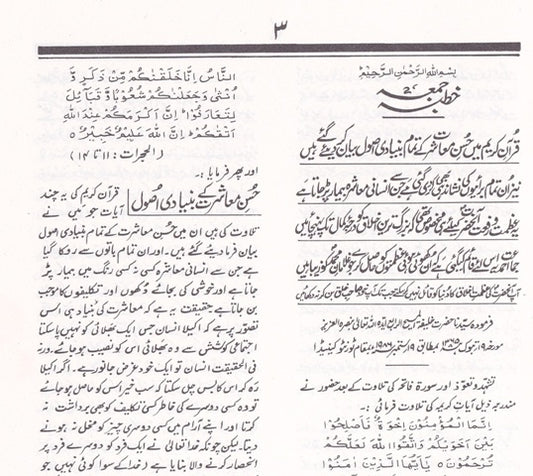 ۳
بِسْمِ اللّٰهِ الرَّحْمٰنِ الرَّحِيْمِ
خطبہ جمعہ
قرآن کریم میں حسن معاشرت کے تمام بنیادی اصول بیان کر دیئے گئے ہیں
نیز ان تمام برائیوں کی نشاندہی بھی کر دی گئی ہے جن سے انسانی معاشرہ بیمار پڑ جاتا ہے
فرمودہ سیدنا حضرت خلیفۃ المسیح الرابع ایدہ اللہ تعالیٰ بنصرہ العزیز
مورخہ ۱۹ تبوک ۱۳۶۵ بمطابق ۱۹ ستمبر ۱۹۸۶ بمقام ٹورنٹو کینیڈا
تشہد و تعوذ اور سورۃ فاتحہ کی تلاوت کے بعد حضور نے
مندرجہ ذیل آیات کریمہ کی تلاوت فرمائی :۔
اِنَّمَا الْمُؤْمِنُوْنَ اِخْوَةٌ فَاَصْلِحُوْا
بَيْنَ اَخَوَيْكُمْ وَاتَّقُوا اللّٰهَ لَعَلَّكُمْ
تُرْحَمُوْنَ يٰٓاَيُّهَا الَّذِيْنَ اٰمَنُوْا
النَّاسُ اِنَّا خَلَقْنٰكُمْ مِّنْ ذَكَرٍ وَّ
اُنْثٰى وَجَعَلْنٰكُمْ شُعُوْبًا وَّ قَبَآئِلَ
لِتَعَارَفُوْا اِنَّ اَكْرَمَكُمْ عِنْدَ اللّٰهِ
اَتْقٰكُمْ اِنَّ اللّٰهَ عَلِيْمٌ خَبِيْرٌ
(الحجرات : ۱۱ تا ۱۴)
اور پھر فرمایا :۔
حسن معاشرت کے بنیادی اصول
قرآن کریم کی یہ چند
آیات جو میں نے
تلاوت کی ہیں ان میں حسن معاشرت کے تمام بنیادی اصول
بیان فرما دیئے گئے ہیں۔ اور ان تمام باتوں سے روکا گیا
ہے جن سے انسانی معاشرہ کسی نہ کسی رنگ میں بیمار پڑ
جاتا ہے اور خوشی کی بجائے دکھوں اور تکلیفوں کا موجب
بن جاتا ہے حقیقت یہ ہے کہ معاشرت کی بنیاد ہی اس
تصور پر ہے کہ اکیلا انسان جس ایک بھلائی کو نہیں پا سکتا
اجتماعی کوشش سے وہ بھلائی اس کو نصیب ہو جائے۔ ورنہ
فی الحقیقت انسان تو ایک خود غرض جانور ہے۔ اگر اکیلا
رہ کر اس کا بس چل سکتا کہ سب خیر اس کو حاصل ہو جائے
تو وہ کسی دوسرے کی خاطر کسی تکلیف کو بھی برداشت نہ
کرتا اور اپنے آرام میں کسی دوسری چیز کو مخل نہ ہونے
دیتا۔ لیکن چونکہ خدا تعالیٰ نے ایک فرد کو دوسرے فرد پر
انحصار کرنے والا بنایا ہے۔ خدا کے سوا کوئی نہیں جو